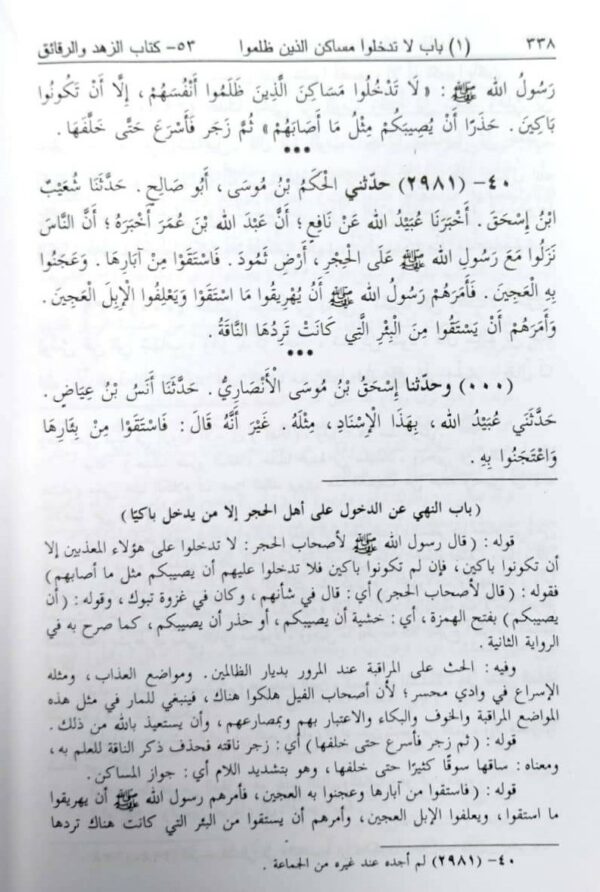 ٣٣٨ (١) باب لا تدخلوا مساكن الذين ظلموا ٥٣- كتاب الزهد والرقائق
رَسُولُ الله ﷺ : «لَا تَدْخُلُوا مَسَاكِنَ الَّذِينَ ظَلَمُوا أَنْفُسَهُمْ، إِلَّا أَنْ تَكُونُوا
بَاكِينَ . حَذَرًا أَنْ يُصِيبَكُمْ مِثْلُ مَا أَصَابَهُمْ» ثُمَّ زَجَرَ فَأَسْرَعَ حَتَّى خَلَّفَهَا.
***
٤٠- (٢٩٨١) حدّثني الْحَكَمُ بْنُ مُوسَى ، أَبُو صَالِحٍ . حَدَّثَنَا شُعَيْبُ
ابْنُ إِسْحَقَ . أَخْبَرَنَا عُبَيْدُ الله عَنْ نَافِعٍ؛ أَنَّ عَبْدَ الله بْنَ عُمَرَ أَخْبَرَهُ؛ أَنَّ النَّاسَ
نَزَلُوا مَعَ رَسُولِ الله ﷺ عَلَى الْحِجْرِ، أَرْضِ ثَمُودَ . فَاسْتَقَوْا مِنْ آبَارِهَا . وَعَجَنُوا
بِهِ الْعَجِينَ . فَأَمَرَهُمْ رَسُولُ الله ﷺ أَنْ يُهْرِيقُوا مَا اسْتَقَوْا وَيَعْلِفُوا الْإِبِلَ الْعَجِينَ .
وَأَمَرَهُمْ أَنْ يَسْتَقُوا مِنَ الْبِئْرِ الَّتِي كَانَتْ تَرِدُهَا النَّاقَةُ.
***
(٠٠٠) وحدّثنا إِسْحَقُ بْنُ مُوسَى الْأَنْصَارِيُّ . حَدَّثَنَا أَنَسُ بْنُ عِيَاضٍ .
حَدَّثَنِي عُبَيْدُ الله، بِهَذَا الْإِسْنَادِ، مِثْلَهُ. غَيْرَ أَنَّهُ قَالَ: فَاسْتَقَوْا مِنْ بِئَارِهَا
وَاعْتَجَنُوا بِهِ .
(باب النهي عن الدخول على أهل الحجر إلا من يدخل باكيًا)
قوله: (قال رسول الله ﷺ لأصحاب الحجر: لا تدخلوا على هؤلاء المعذبين إلا
أن تكونوا باكين، فإن لم تكونوا باكين فلا تدخلوا عليهم أن يصيبكم مثل ما أصابهم)
فقوله: (قال لأصحاب الحجر) أي: قال في شأنهم، وكان في غزوة تبوك، وقوله: (أن
يصيبكم) بفتح الهمزة، أي: خشية أن يصيبكم، أو حذر أن يصيبكم، كما صرح به في
الرواية الثانية .
وفيه: الحث على المراقبة عند المرور بديار الظالمين. ومواضع العذاب، ومثله
الإسراع في وادي محسر؛ لأن أصحاب الفيل هلكوا هناك، فينبغي للمار في مثل هذه
المواضع المراقبة والخوف والبكاء والاعتبار بهم وبمصارعهم، وأن يستعيذ بالله من ذلك.
قوله: (ثم زجر فأسرع حتى خلفها) أي: زجر ناقته فحذف ذكر الناقة للعلم به،
ومعناه: ساقها سوقًا كثيرًا حتى خلفها، وهو بتشديد اللام أي: جواز المساكن.
قوله: (فاستقوا من آبارها وعجنوا به العجين، فأمرهم رسول الله ﷺ أن يهريقوا
ما استقوا، ويعلفوا الإبل العجين، وأمرهم أن يستقوا من البئر التي كانت هناك تردها
٤٠- (٢٩٨١) لم أجده عند غيره من الجماعة .